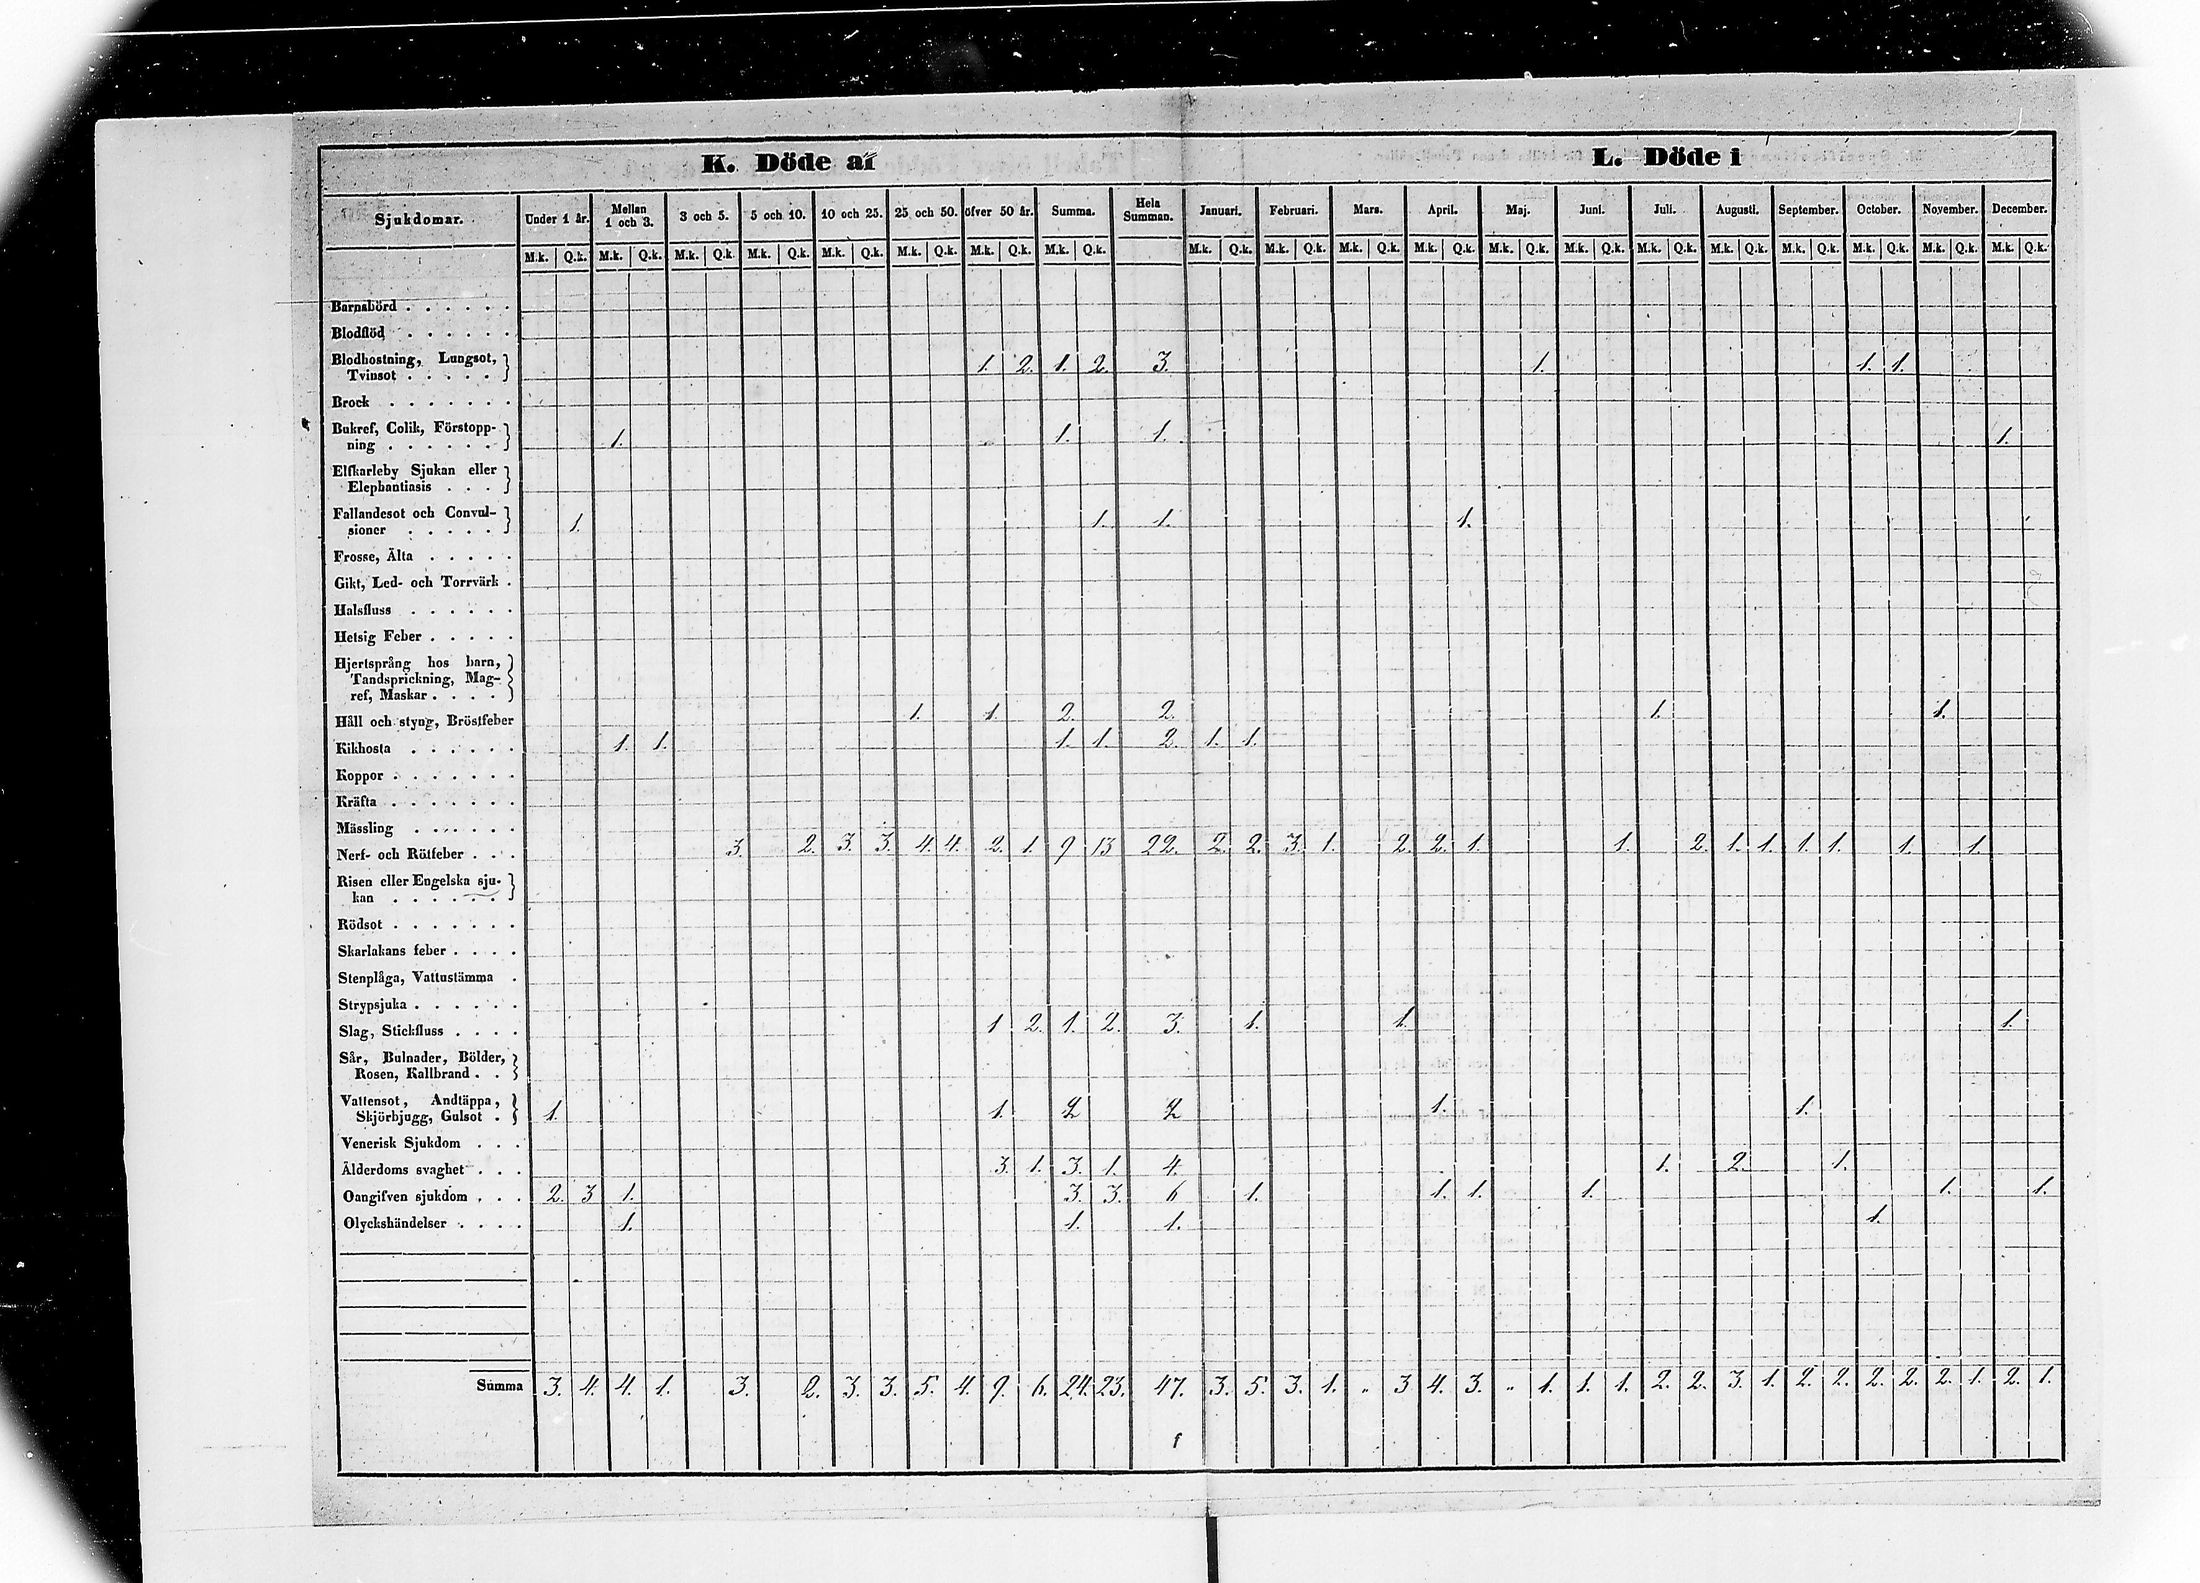 K. Döde af L. Döde i
Sjukdomar. Under 1 år. Mellan 1 och 3. 3 och 5. 5 och 10. 10 och 25. 25 och 50. öfver 50 år. Summa. Hela Summan. Januari. Februari. Mars. April. Maj. Juni. Juli. Augusti. September. October. November. December.
M.k. Q.k. M.k. Q.k. M.k. Q.k. M.k. Q.k. M.k. Q.k. M.k. Q.k. M.k. Q.k. M.k. Q.k. M.k. Q.k. M.k. Q.k. M.k. Q.k. M.k. Q.k. M.k. Q.k. M.k. Q.k. M.k. Q.k. M.k. Q.k. M.k. Q.k. M.k. Q.k. M.k. Q.k. M.k. Q.k.
Barnsbörd . . . . . .
Blodflöd . . . . . .
Blodhostning, Lungsot,
Tvinsot . . . . . 1. 2. 1. 2. 3. 1. 1. 1.
Brock . . . . . . .
Bukref, Colik, Förstopp-
ning . . . . . . 1. 1. 1. 1.
Elfkarleby Sjukan eller
Elephantiasis . . .
Fallandesot och Convul-
sioner . . . . . 1. 1. 1. 1.
Frosse, Älta . . . . .
Gikt, Led- och Torrvärk .
Halsfluss . . . . . .
Hetsig Feber . . . . .
Hjertsprång hos barn,
Tandsprickning, Mag-
ref, Maskar . . . .
Håll och styng, Bröstfeber 1. 1. 2. 2. 1. 1.
Kikhosta . . . . . . 1. 1. 1. 1. 2. 1. 1.
Koppor . . . . . . .
Kräfta . . . . . . .
Mässling . . . . . .
Nerf- och Rötfeber . . . 3. 2. 3. 3. 4. 4. 2. 1. 9 13 22. 2. 2. 3. 1. 2. 2. 1. 1. 2. 1. 1. 1. 1. 1. 1.
Risen eller Engelska sju-
kan . . . . . .
Rödsot . . . . . . .
Skarlakans feber . . . .
Stenplåga, Vattustämma .
Strypsjuka . . . . . .
Slag, Stickfluss . . . . 1 2. 1. 2. 3. 1. 1. 1.
Sår, Bulnader, Bölder,
Rosen, Kallbrand . .
Vattensot, Andtäppa,
Skjörbjugg, Gulsot . 1. 1. 2 2 1. 1.
Venerisk Sjukdom . . .
Ålderdoms svaghet . . . 3. 1. 3. 1. 4. 1. 2. 1.
Oangifven sjukdom . . . 2. 3 1. 3. 3. 6 1. 1. 1. 1. 1. 1.
Olyckshändelser . . . . 1. 1. 1. 1.
Summa 3. 4. 4. 1. 3. 2. 3. 3. 5. 4. 9. 6. 24. 23. 47. 3. 5. 3. 1. " 3 4. 3. " 1. 1. 1. 2. 2. 3. 1. 2. 2. 2. 2. 2. 1. 2. 1.